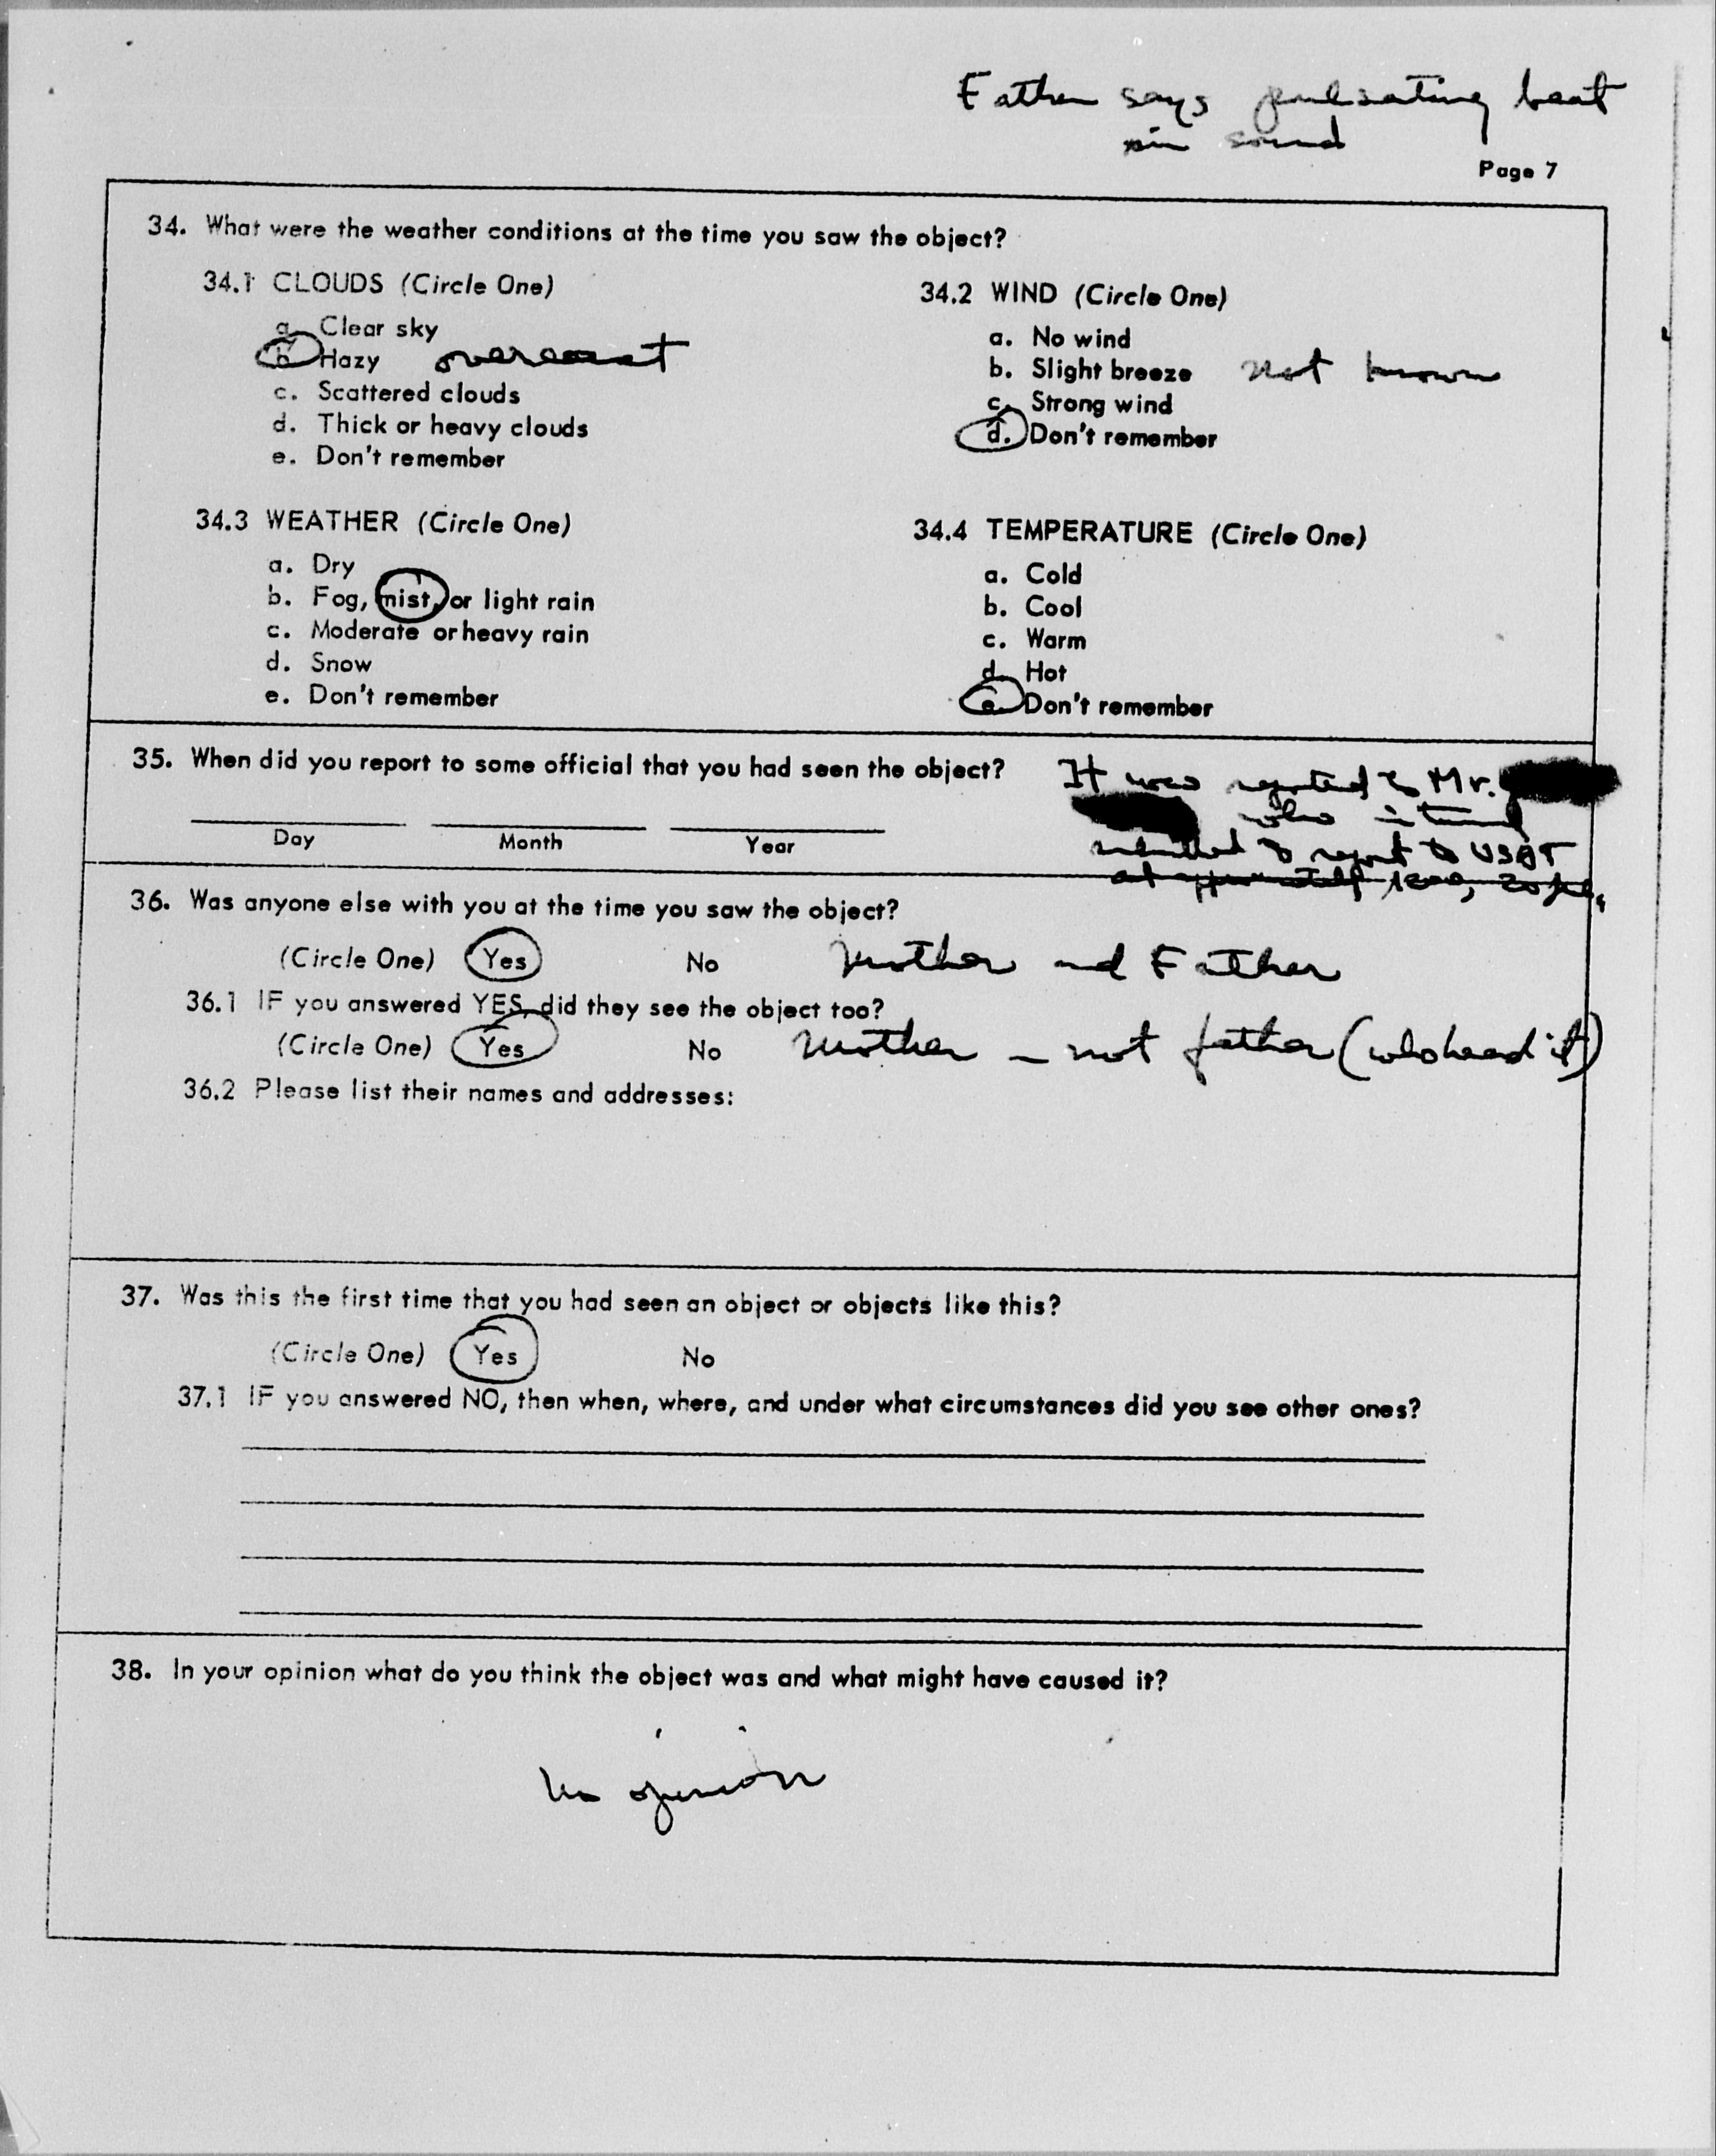 Father says pulsating beat
in sound
Page 7
34. What were the weather conditions at the time you saw the object?
34.1 CLOUDS (Circle One)
a. Clear sky
b. Hazy overcast
c. Scattered clouds
d. Thick or heavy clouds
e. Don't remember
34.2 WIND (Circle One)
a. No wind
b. Slight breeze not known
c. Strong wind
d. Don't remember
34.3 WEATHER (Circle One)
a. Dry
b. Fog, mist, or light rain
c. Moderate or heavy rain
d. Snow
e. Don't remember
34.4 TEMPERATURE (Circle One)
a. Cold
b. Cool
c. Warm
d. Hot
e. Don't remember
35. When did you report to some official that you had seen the object?
Day Month Year
It was reported to Mr.
who in turn
submitted report to
at approximately
36. Was anyone else with you at the time you saw the object?
(Circle One) Yes No Mother and Father
36.1 IF you answered YES, did they see the object too?
(Circle One) Yes No Mother - not father (who heard it)
36.2 Please list their names and addresses:
37. Was this the first time that you had seen an object or objects like this?
(Circle One) Yes No
37.1 IF you answered NO, then when, where, and under what circumstances did you see other ones?
38. In your opinion what do you think the object was and what might have caused it?
No opinion